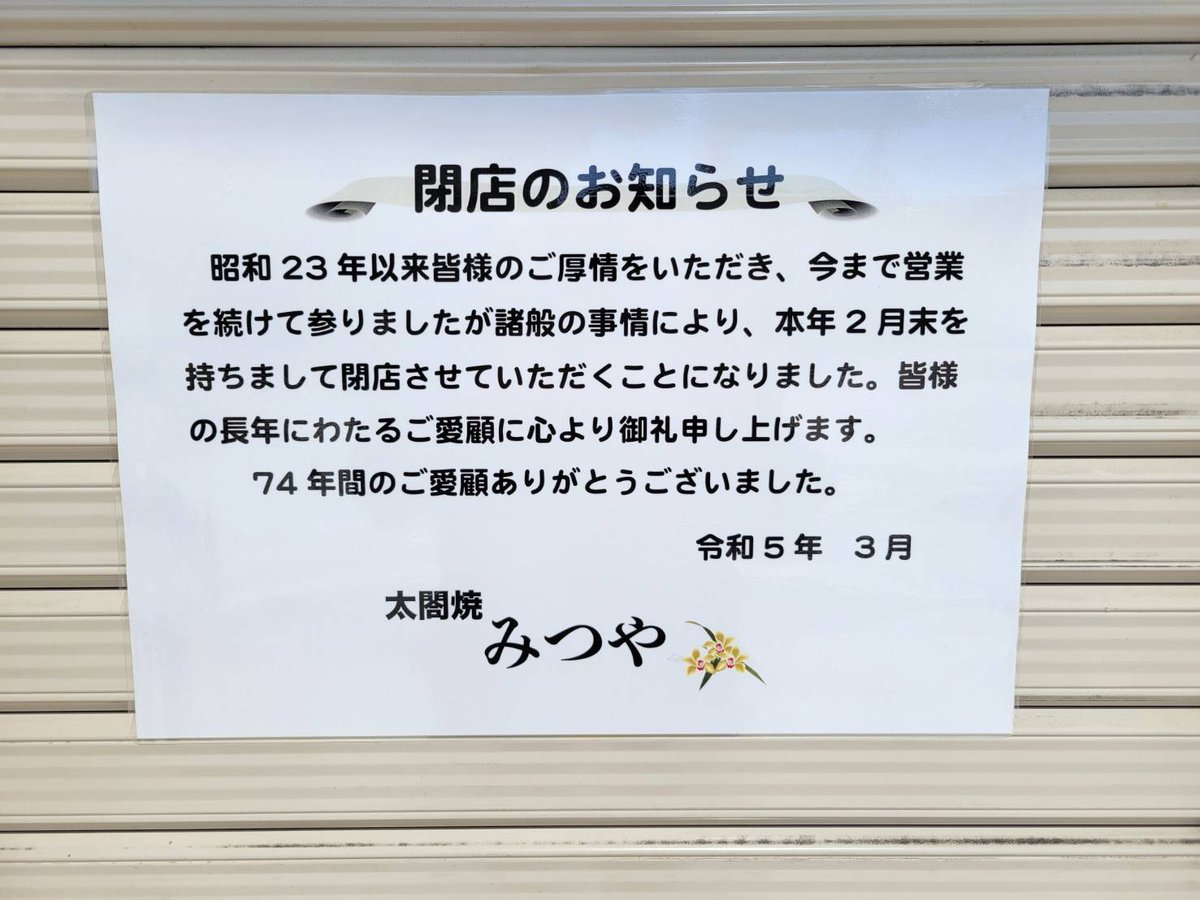 閉店のお知らせ
昭和23年以来皆様のご厚情をいただき、今まで営業
を続けて参りましたが諸般の事情により、本年2月末を
持ちまして閉店させていただくことになりました。皆様
の長年にわたるご愛顧に心より御礼申し上げます。
74年間のご愛顧ありがとうございました。
令和5年　3月
太閤焼
みつや